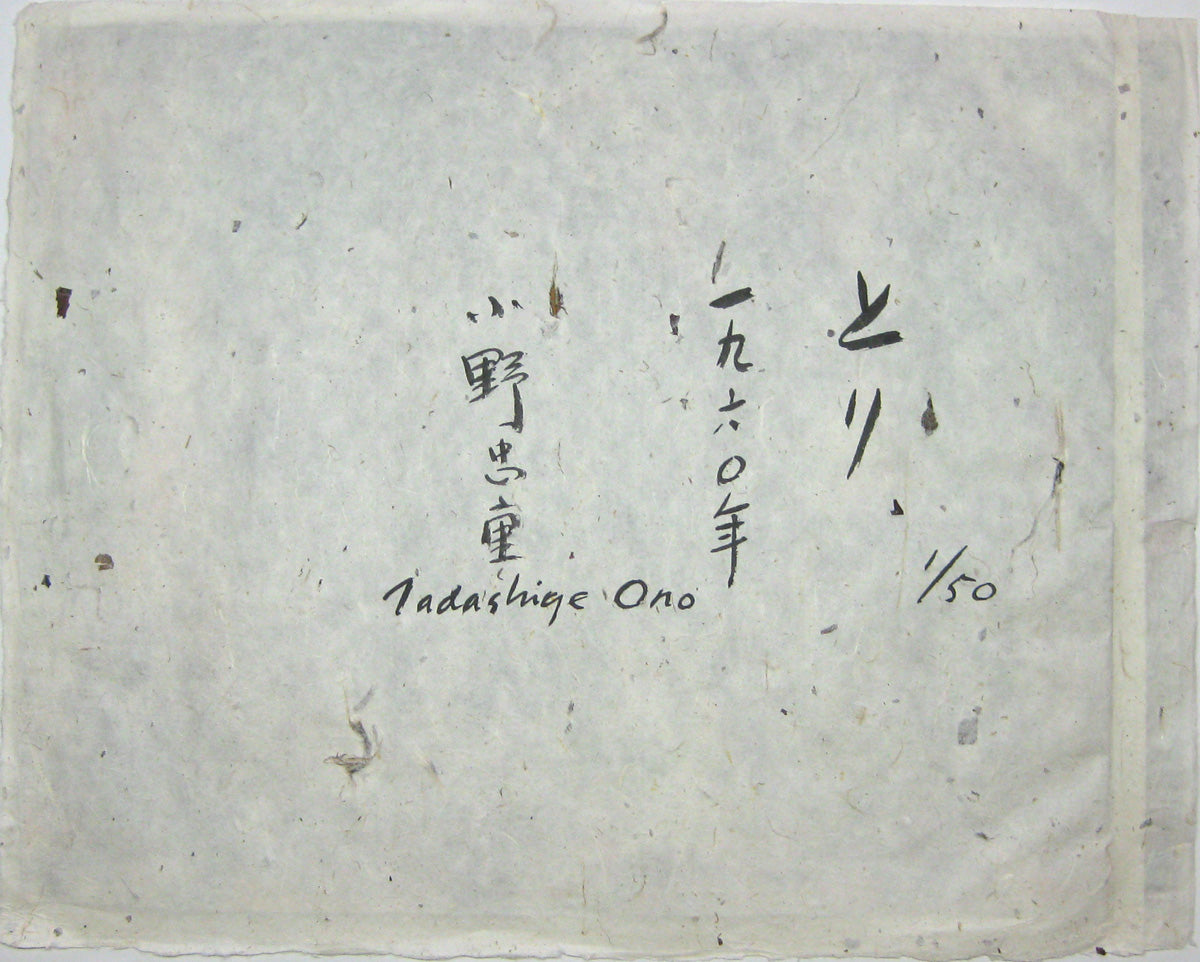 とり
1/50
一九六〇年
小野忠重
Tadashige Ono